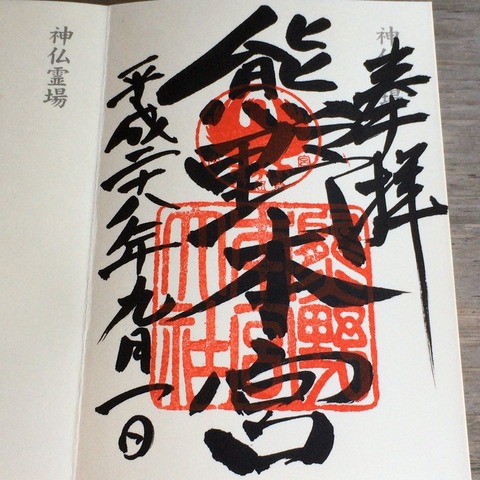 奉拝
熊野本宮
平成二十八年九月一日
熊野本宮大社
神仏霊場
神仏霊場